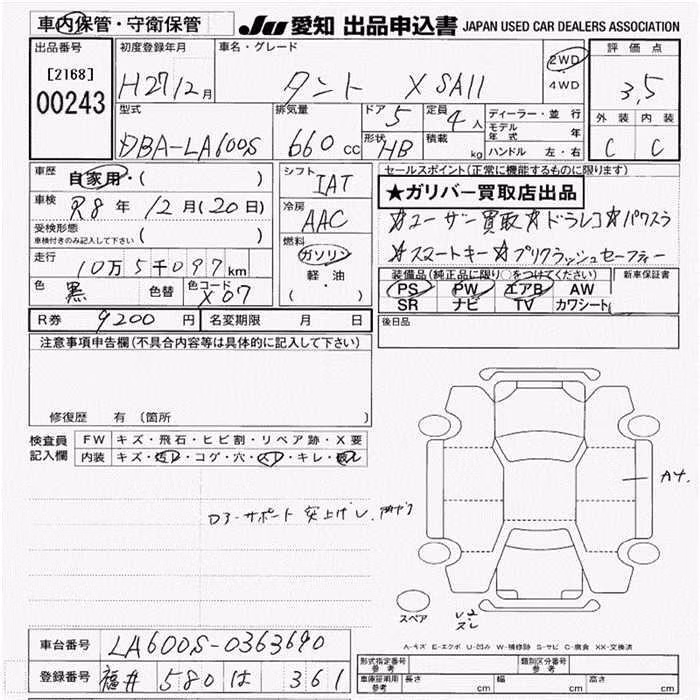 車内保管・守衛保管
JU 愛知 出品申込書 JAPAN USED CAR DEALERS ASSOCIATION
出品番号
[2168]
00243
初度登録年月
H27 12月
車名・グレード
タント X SAII
2WD
4WD
評価点
3,5
外装 内装
C C
型式
DBA-LA600S
排気量
660 cc
ドア 5
定員 4人
形状 HB
積載 kg
ディーラー・並行
モデル年式 年
ハンドル 左・右
車歴
自家用・( )
車検
R8年 12月(20日)
受検形態
車検付きのみ記入して下さい ( )
走行
10万5千097km
色 黒 色替 色コード X07
シフト
IAT
冷房
AAC
燃料
ガソリン
軽・油
( ・ )
セールスポイント(正常に機能するものに限ります)
★ガリバー買取店出品
☆ユーザー買取☆ドラレコ☆パワスラ
☆スマートキー☆プリクラッシュセーフティー
装備品(純正品に限り○をつけてください) 新車保証書
PS PW エアB AW
SR ナビ TV カワシート
R券 9200円 名変期限 月 日
後日品
注意事項申告欄(不具合内容等は具体的に記入して下さい)
修復歴 有 〔箇所
検査員記入欄
FW キズ・飛石・ヒビ割・リペア跡・X要
内装 キズ・汚レ・コゲ・穴・スレ・キレ・破レ
A4
スペア
A-キズ E-エクボ U-凹み W-補修跡 S-サビ C-腐食 XX-交換済
車台番号 LA600S-0363690
登録番号 福井 580 は 361
形式指定番号 参考 類別区分番号 参考
車庫証明用 参考 長さ cm 幅 cm 高さ cm